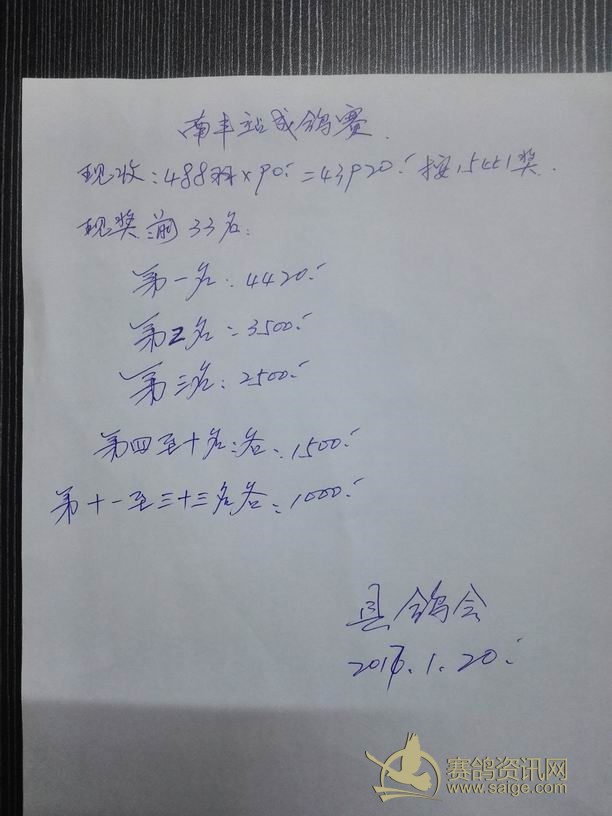 南丰站成鸽赛.
现收:488羽×90.=43920. 按15401奖.
现奖前33名:
第一名:4420.
第二名:3500.
第三名:2500.
第四至十名:各:1500.
第十一至三十三名各:1000.
县鸽会
2017.1.20.
赛鸽资讯网
www.saige.com